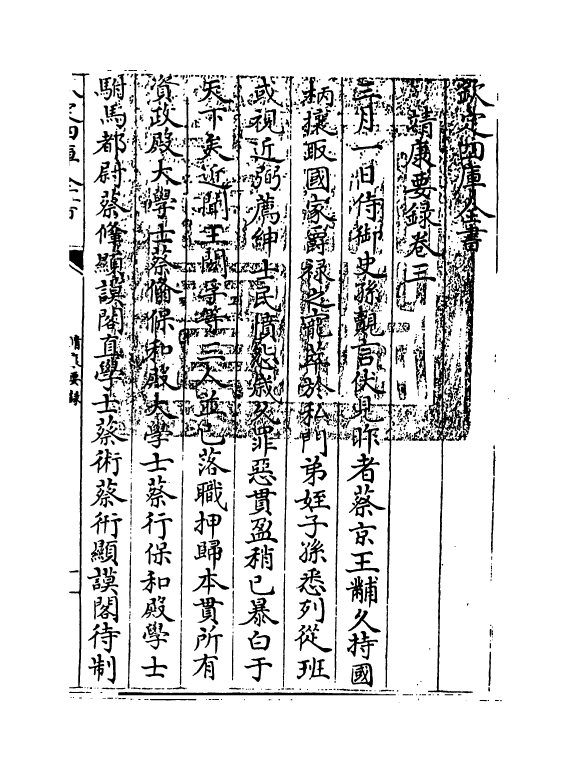 欽定四庫全書
靖康要録卷三
三月一日侍御史孫覿言伏見昨者蔡京王黼久持國
柄攘取國家爵禄之寵萃於私門弟姪子孫悉列從班
或視近弼薦紳士民憤怨歲久罪惡貫盈稍已暴白于
天下矣近聞王閎孚等三人並已落職押歸本貫所有
資政殿大學士蔡翛保和殿大學士蔡行保和殿學士
駙馬都尉蔡鞗顯謨閣直學士蔡術蔡術顯謨閣待制